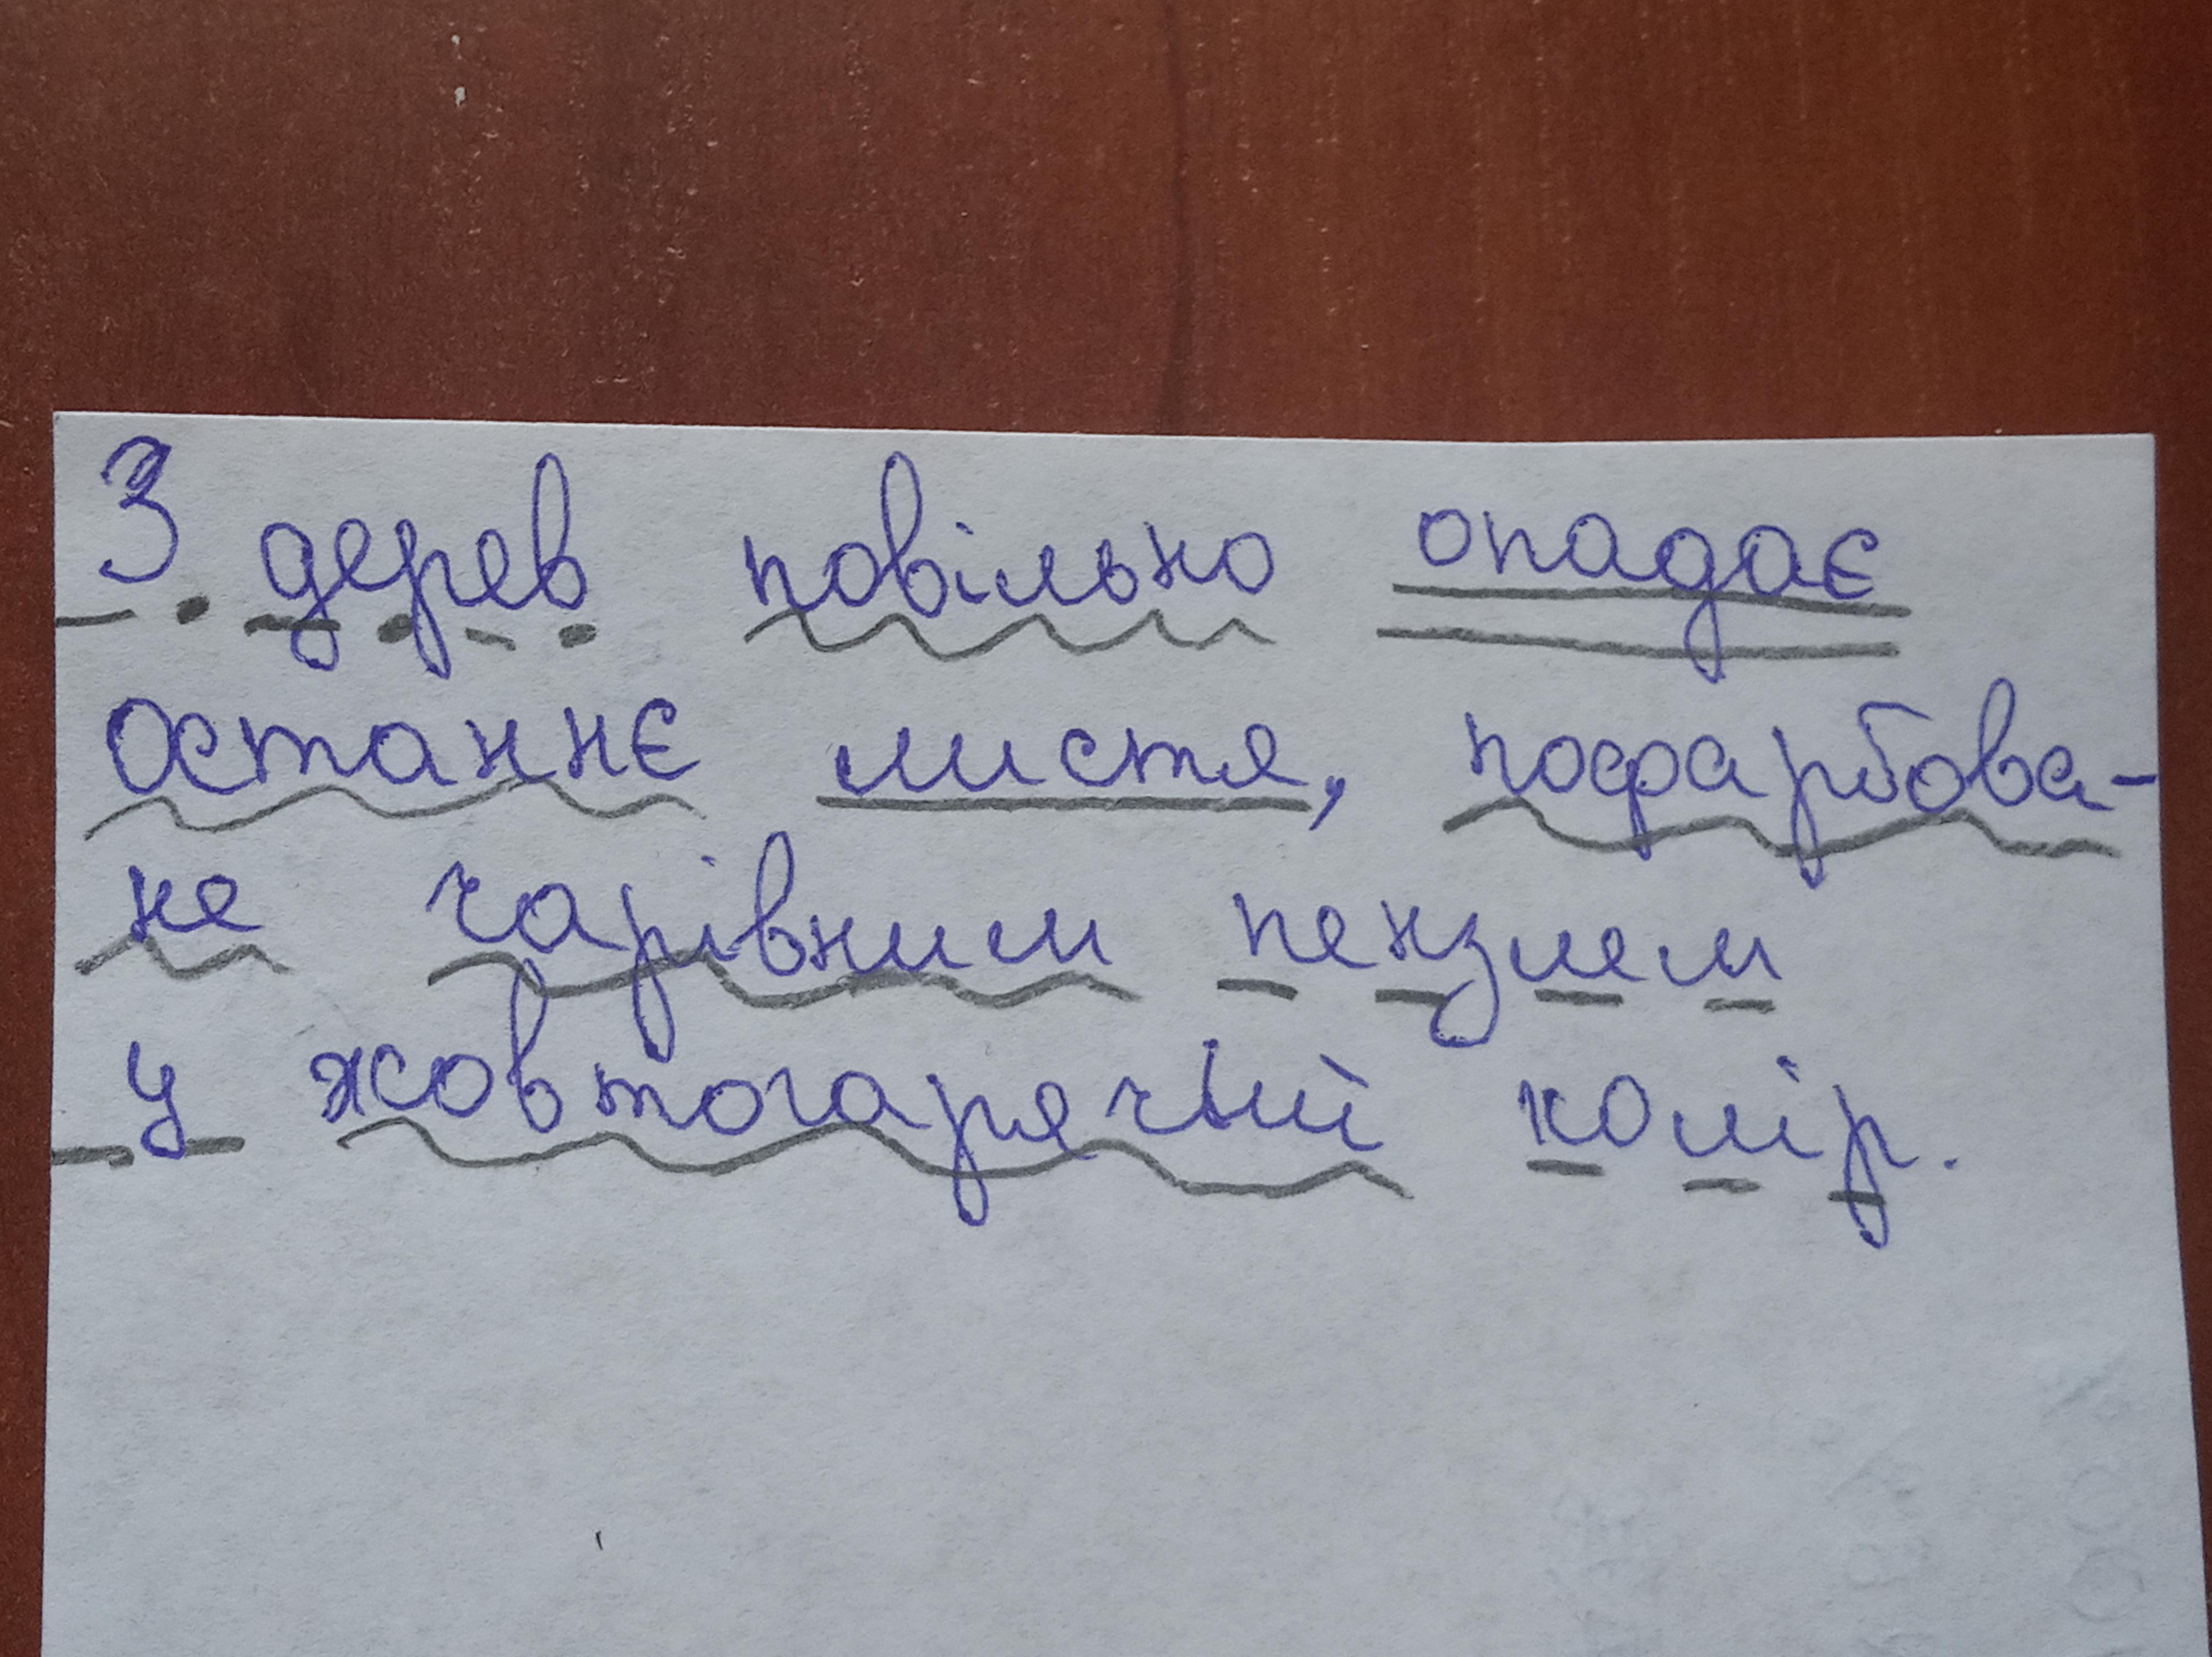 З дерев повільно опадає
останнє листя, пофарбова-
не чарівним пензлем
у жовтогарячий колір.